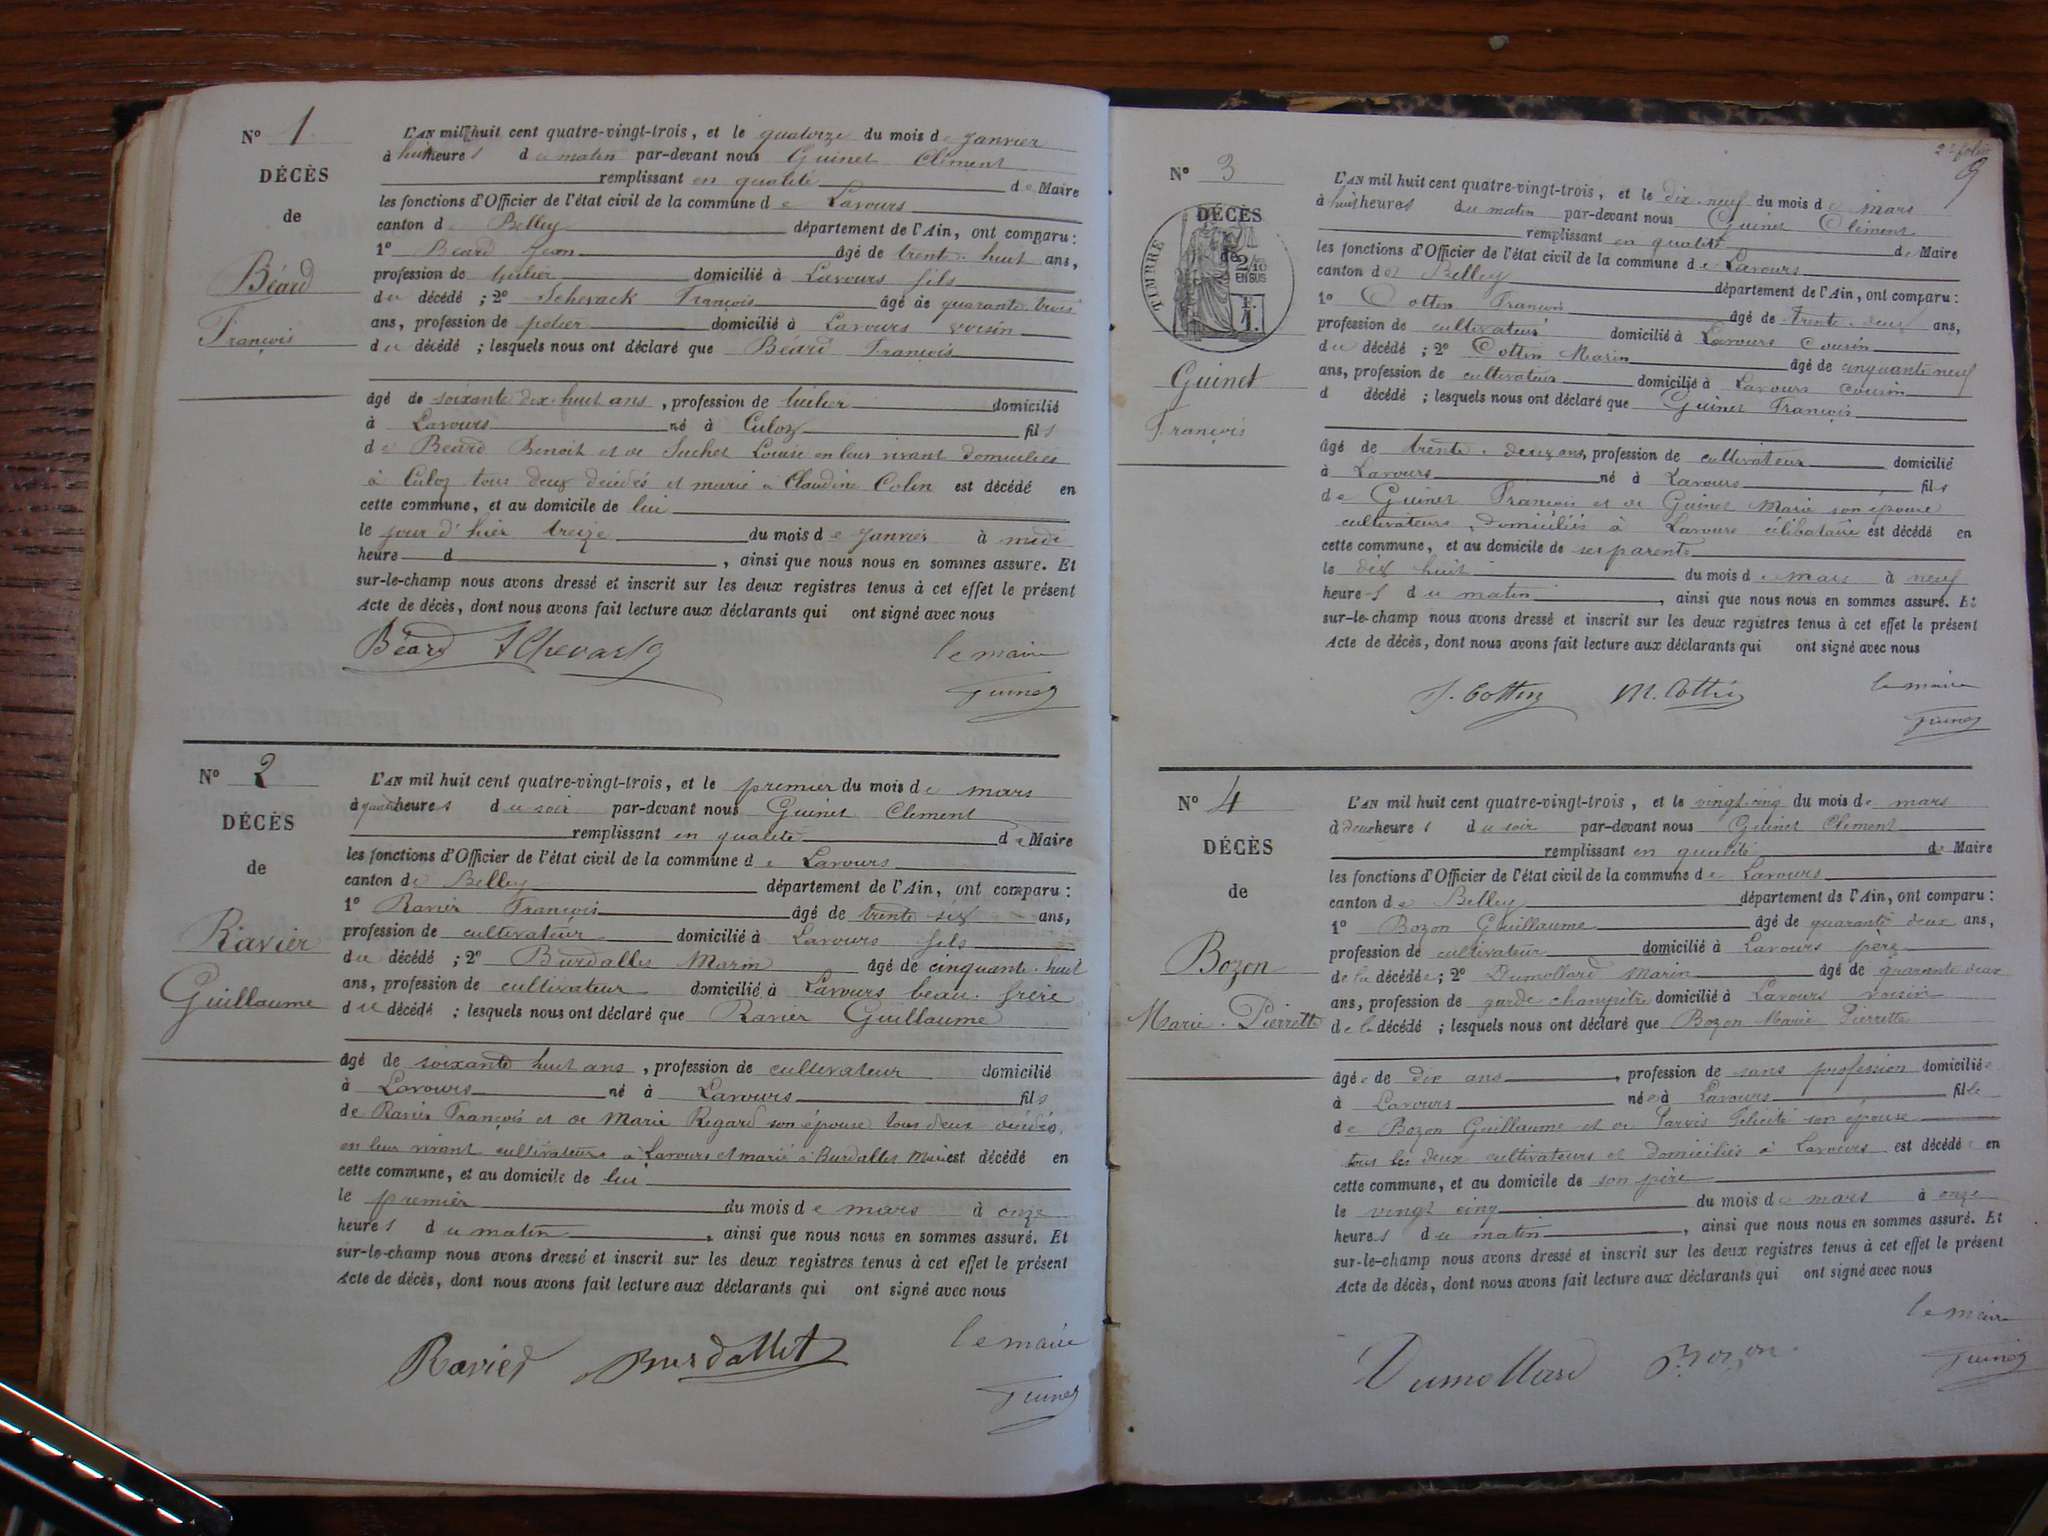 N° 1
DÉCÈS
de
Béard
François
L'AN mil huit cent quatre-vingt-trois, et le quatorze du mois de Janvier
à huit heures du matin par-devant nous Guinet Clément
remplissant en qualité de Maire
les fonctions d'Officier de l'état civil de la commune de Lavours
canton de Belley département de l'Ain, ont comparu :
1° Béard Jean âgé de trente-huit ans,
profession de tuilier domicilié à Lavours fils
du décédé ; 2° François âgé de quarante-trois
ans, profession de potier domicilié à Lavours voisin
du décédé ; lesquels nous ont déclaré que Béard François
âgé de soixante dix-huit ans, profession de tuilier domicilié
à Lavours né à Culoz fils
de Béard Benoit et de Suchet Louise en leur vivant domiciliés
à Culoz tous deux décédés et marié à Claudine Colin est décédé en
cette commune, et au domicile de lui
le jour d'hier treize du mois de Janvier à midi
heure d , ainsi que nous nous en sommes assuré. Et
sur-le-champ nous avons dressé et inscrit sur les deux registres tenus à cet effet le présent
Acte de décès, dont nous avons fait lecture aux déclarants qui ont signé avec nous
Béard
le maire
Guinet
N° 2
DÉCÈS
de
Ravier
Guillaume
L'AN mil huit cent quatre-vingt-trois, et le premier du mois de mars
à quatre heures du soir par-devant nous Guinet Clément
remplissant en qualité de Maire
les fonctions d'Officier de l'état civil de la commune de Lavours
canton de Belley département de l'Ain, ont comparu :
1° Ravier François âgé de trente six ans,
profession de cultivateur domicilié à Lavours fils
du décédé ; 2° Burdallet Marin âgé de cinquante-huit
ans, profession de cultivateur domicilié à Lavours beau-frère
du décédé ; lesquels nous ont déclaré que Ravier Guillaume
âgé de soixante huit ans, profession de cultivateur domicilié
à Lavours né à Lavours fils
de Ravier François et de Marie Regard son épouse tous deux décédés
en leur vivant cultivateurs à Lavours et marié à Burdallet Marie est décédé en
cette commune, et au domicile de lui
le premier du mois de mars à onze
heures du matin , ainsi que nous nous en sommes assuré. Et
sur-le-champ nous avons dressé et inscrit sur les deux registres tenus à cet effet le présent
Acte de décès, dont nous avons fait lecture aux déclarants qui ont signé avec nous
Ravier Burdallet
le maire
Guinet
2e folio
N° 3
DÉCÈS
de
TIMBRE
2/10
EN SUS
Guinet
François
L'AN mil huit cent quatre-vingt-trois, et le dix-neuf du mois de mars
à huit heures du matin par-devant nous Guinet Clément
remplissant en qualité de Maire
les fonctions d'Officier de l'état civil de la commune de Lavours
canton de Belley département de l'Ain, ont comparu :
1° Cottin François âgé de trente-deux ans,
profession de cultivateur domicilié à Lavours cousin
du décédé ; 2° Cottin Marin âgé de cinquante neuf
ans, profession de cultivateur domicilié à Lavours cousin
d décédé ; lesquels nous ont déclaré que Guinet François
âgé de trente-deux ans, profession de cultivateur domicilié
à Lavours né à Lavours fils
de Guinet François et de Guinet Marie son épouse
cultivateurs, domiciliés à Lavours célibataire est décédé en
cette commune, et au domicile de ses parents
le dix huit du mois de mars à neuf
heures du matin , ainsi que nous nous en sommes assuré. Et
sur-le-champ nous avons dressé et inscrit sur les deux registres tenus à cet effet le présent
Acte de décès, dont nous avons fait lecture aux déclarants qui ont signé avec nous
f. Cottin M. Cottin
le maire
Guinet
N° 4
DÉCÈS
de
Bozon
Marie-Pierrette
L'AN mil huit cent quatre-vingt-trois, et le vingt-cinq du mois de mars
à deux heures du soir par-devant nous Guinet Clément
remplissant en qualité de Maire
les fonctions d'Officier de l'état civil de la commune de Lavours
canton de Belley département de l'Ain, ont comparu :
1° Bozon Guillaume âgé de quarante deux ans,
profession de cultivateur domicilié à Lavours père
de la décédée ; 2° Dumollard Marin âgé de quarante deux
ans, profession de garde champêtre domicilié à Lavours voisin
de la décédé ; lesquels nous ont déclaré que Bozon Marie Pierrette
âgée de dix ans , profession de sans profession domiciliée
à Lavours née à Lavours fille
de Bozon Guillaume et de Parvis Félicité son épouse
tous les deux cultivateurs et domiciliés à Lavours est décédée en
cette commune, et au domicile de son père
le vingt cinq du mois de mars à onze
heures du matin , ainsi que nous nous en sommes assuré. Et
sur-le-champ nous avons dressé et inscrit sur les deux registres tenus à cet effet le présent
Acte de décès, dont nous avons fait lecture aux déclarants qui ont signé avec nous
Dumollard Bozon
le maire
Guinet